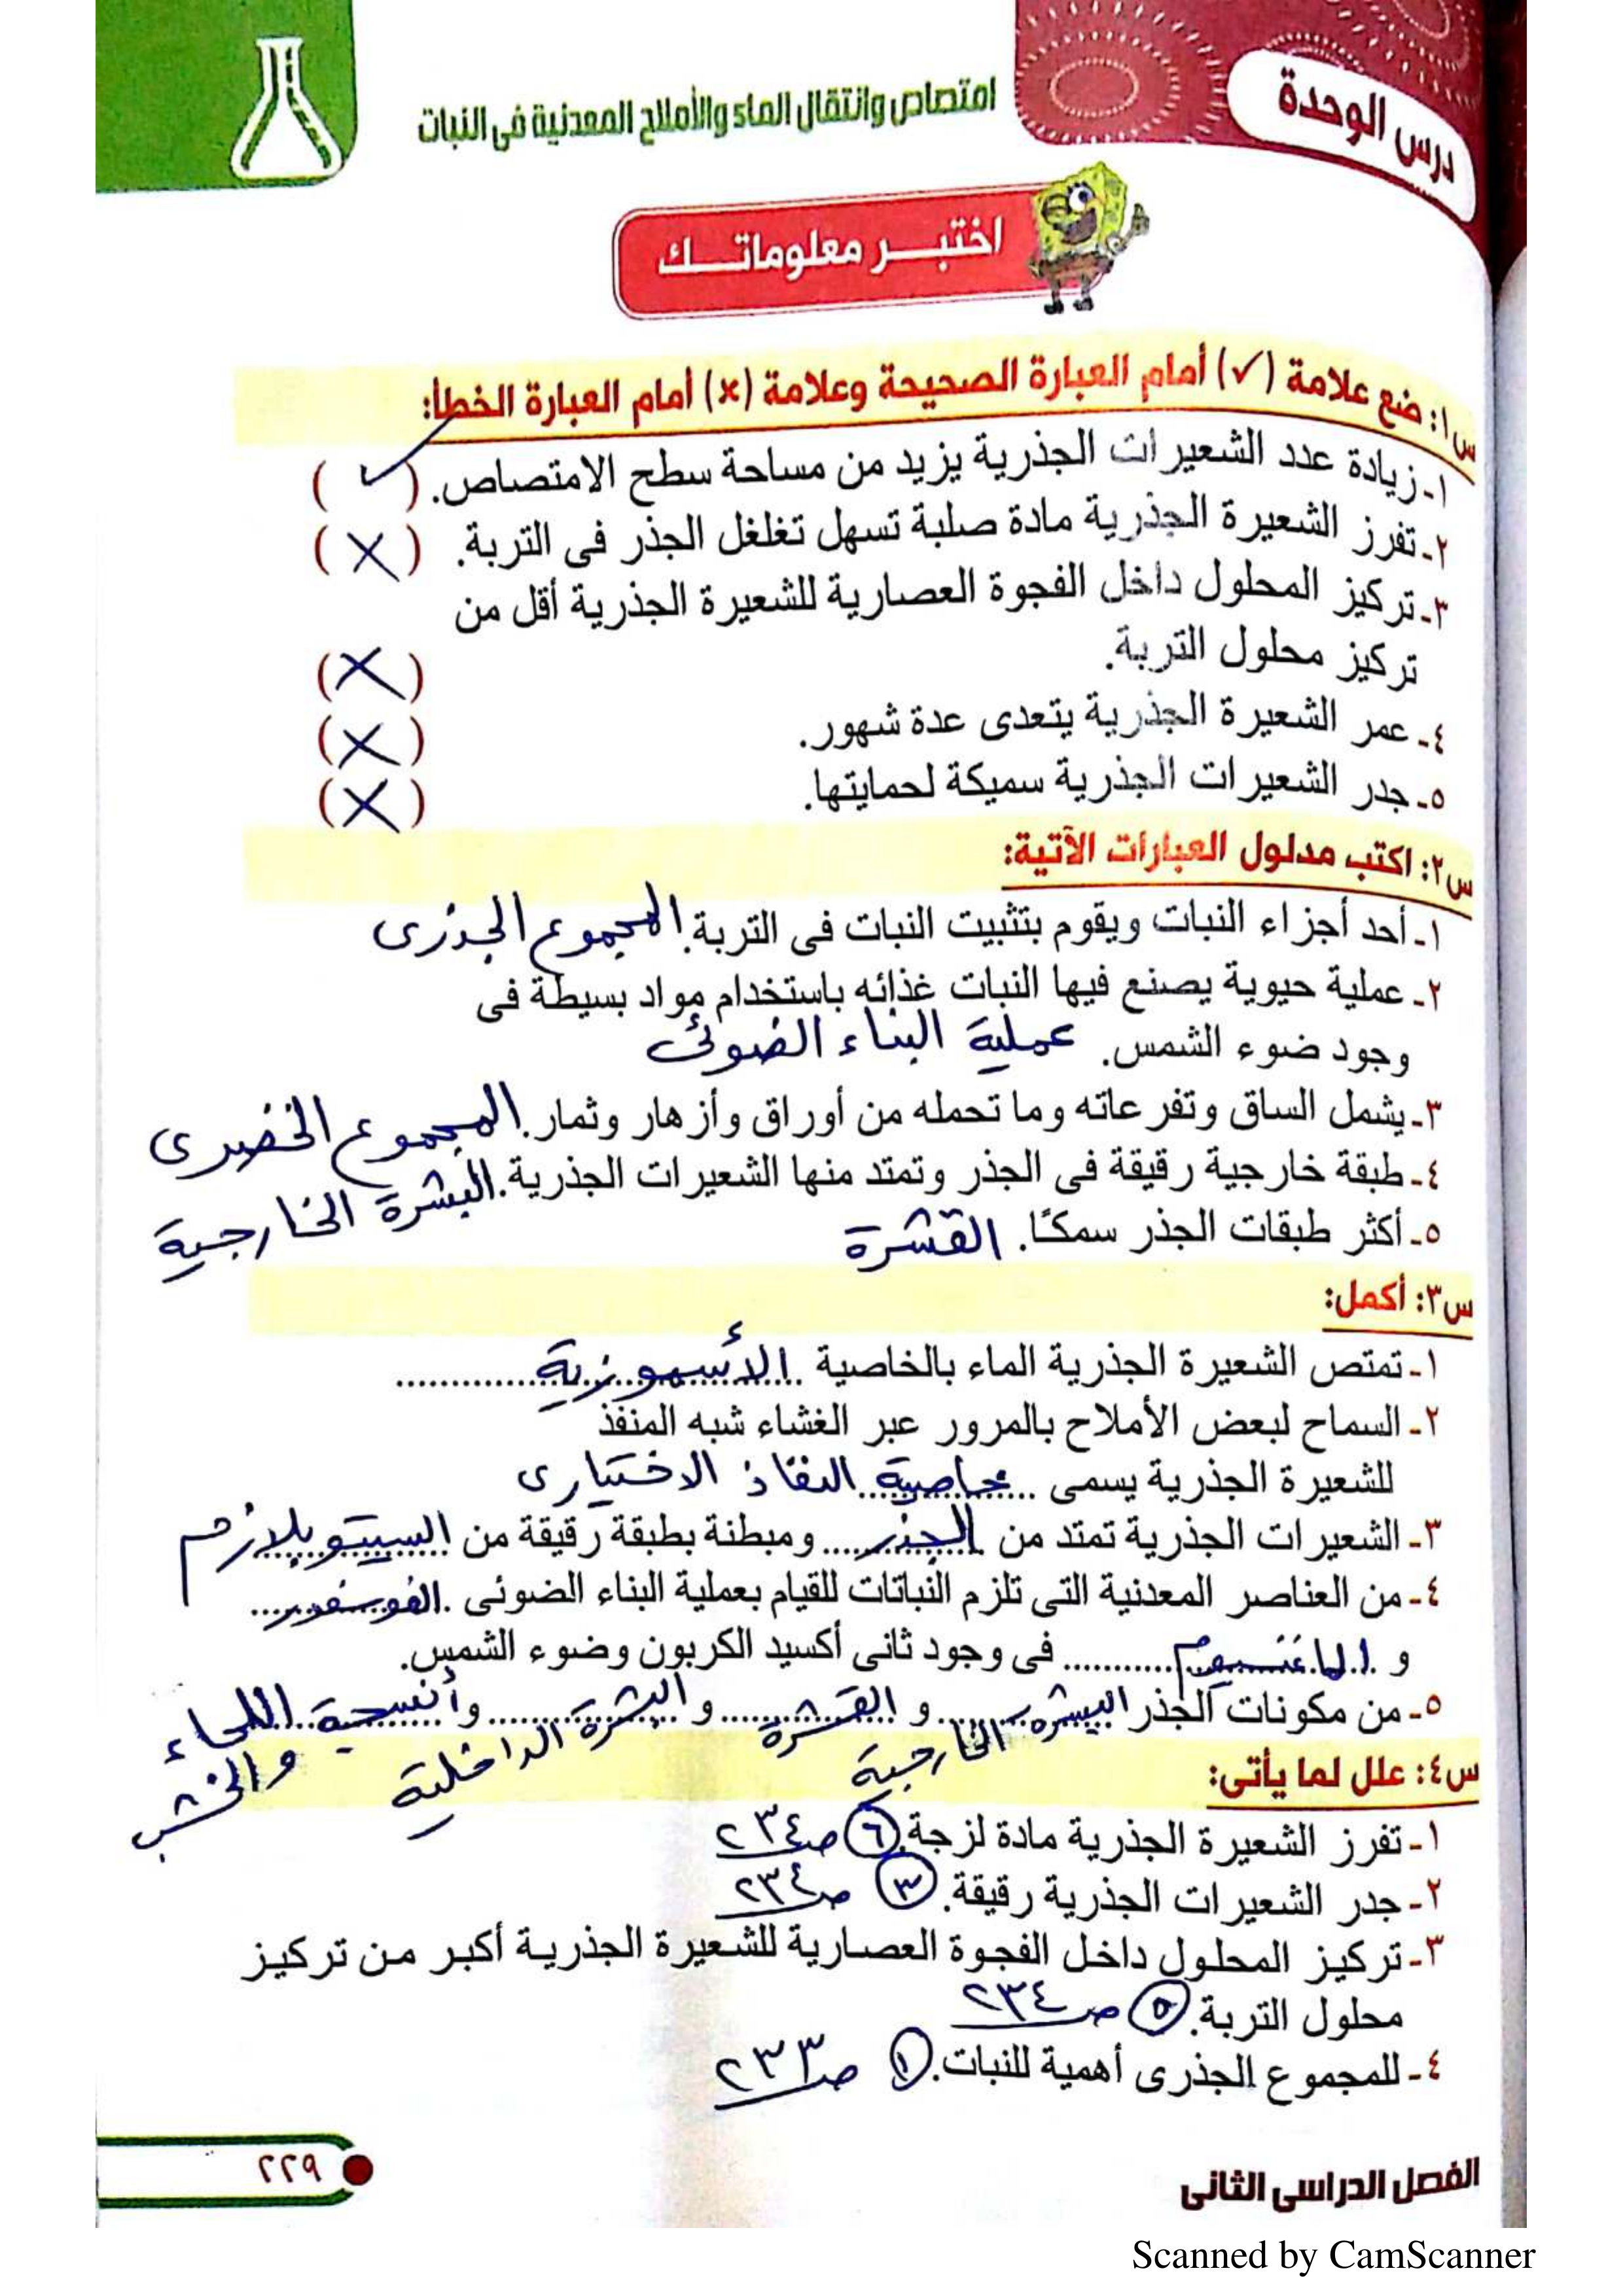 درس الوحدة
امتصاص وانتقال الماء والأملاح المعدنية فى النبات
اختبر معلوماتك
س١: ضع علامة (✓) أمام العبارة الصحيحة وعلامة (×) أمام العبارة الخطأ:
١- زيادة عدد الشعيرات الجذرية يزيد من مساحة سطح الامتصاص. (✓)
٢- تفرز الشعيرة الجذرية مادة صلبة تسهل تغلغل الجذر فى التربة. (×)
٣- تركيز المحلول داخل الفجوة العصارية للشعيرة الجذرية أقل من
تركيز محلول التربة. (×)
٤- عمر الشعيرة الجذرية يتعدى عدة شهور. (×)
٥- جدر الشعيرات الجذرية سميكة لحمايتها. (×)
س٢: اكتب مدلول العبارات الآتية:
١- أحد أجزاء النبات ويقوم بتثبيت النبات فى التربة. المجموع الجذرى
٢- عملية حيوية يصنع فيها النبات غذائه باستخدام مواد بسيطة فى
وجود ضوء الشمس. عملية البناء الضوئى
٣- يشمل الساق وتفرعاته وما تحمله من أوراق وأزهار وثمار. المجموع الخضرى
٤- طبقة خارجية رقيقة فى الجذر وتمتد منها الشعيرات الجذرية. البشرة الخارجية
٥- أكثر طبقات الجذر سمكًا. القشرة
س٣: أكمل:
١- تمتص الشعيرة الجذرية الماء بالخاصية الأسموزية
٢- السماح لبعض الأملاح بالمرور عبر الغشاء شبه المنفذ
للشعيرة الجذرية يسمى خاصية النفاذ الاختيارى
٣- الشعيرات الجذرية تمتد من الجذر ومبطنة بطبقة رقيقة من السيتوبلازم
٤- من العناصر المعدنية التى تلزم النباتات للقيام بعملية البناء الضوئى الفوسفور
و الماغنسيوم فى وجود ثانى أكسيد الكربون وضوء الشمس.
٥- من مكونات الجذر البشرة الخارجية و القشرة و البشرة الداخلية و أنسجة اللحاء والخشب
س٤: علل لما يأتى:
١- تفرز الشعيرة الجذرية مادة لزجة. ٦ ص ٢٣٤
٢- جدر الشعيرات الجذرية رقيقة. ٣ ص ٢٣٤
٣- تركيز المحلول داخل الفجوة العصارية للشعيرة الجذرية أكبر من تركيز
محلول التربة. ٥ ص ٢٣٤
٤- للمجموع الجذرى أهمية للنبات. ١ ص ٢٣٣
الفصل الدراسى الثانى
٢٢٩
Scanned by CamScanner